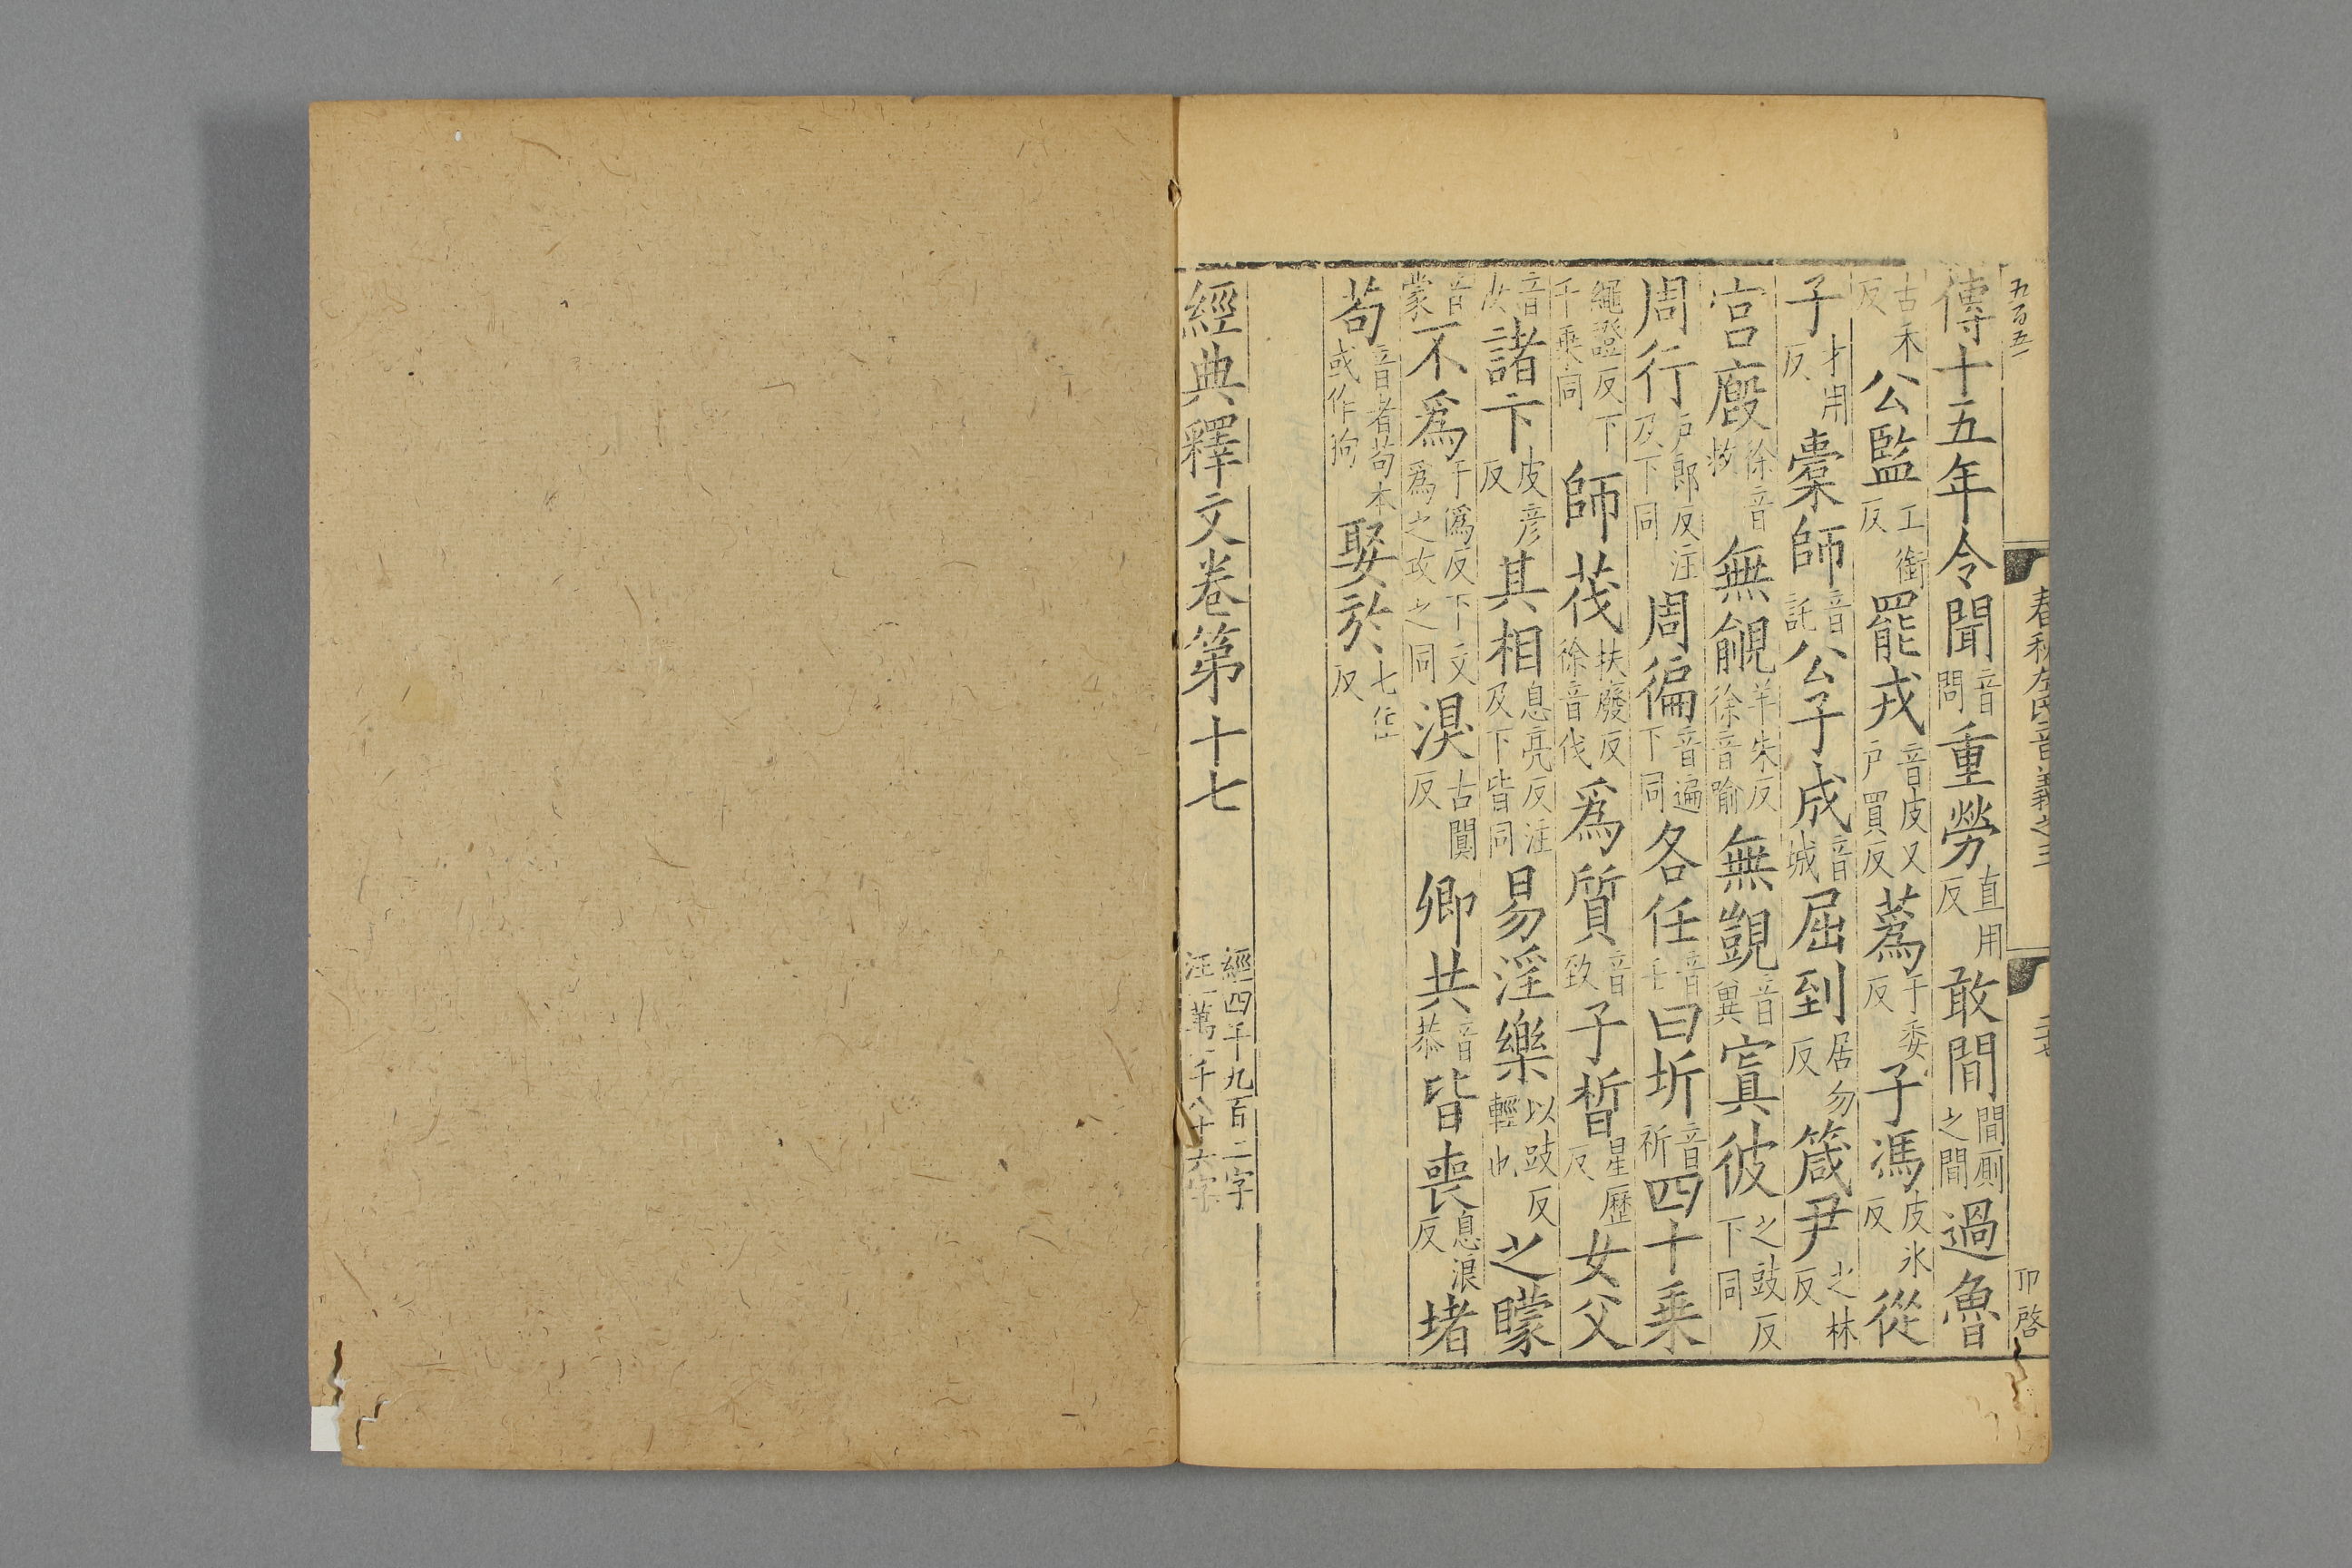 九百五
春秋左氏音義之三
二十七
卬啓
傳十五年令聞音問重勞直用反敢間間厠之間過魯
古禾反公監工銜反罷戎音皮又戶買反蒍于委反子馮皮氷反從
子才用反橐師音託公子成音城屈到居勿反箴尹之林反
宮廄徐音救無覦羊朱反徐音喻無覬音冀寘彼之豉反下同
周行戶郎反注及下同周徧音遍下同各任音壬曰圻音祈四十乗
繩證反下千乗同師茷扶廢反徐音伐爲質音致子晳星歷反女父
音汝諸卞皮彦反其相息亮反注及下皆同易淫樂以豉反輕也之矇
音蒙不爲于僞反下文爲之攻之同湨古闃反卿共音恭皆喪息浪反堵
苟音者苟本或作狗娶於七住反
經典釋文卷第十七 經四千九百二字 注一萬一千八十六字